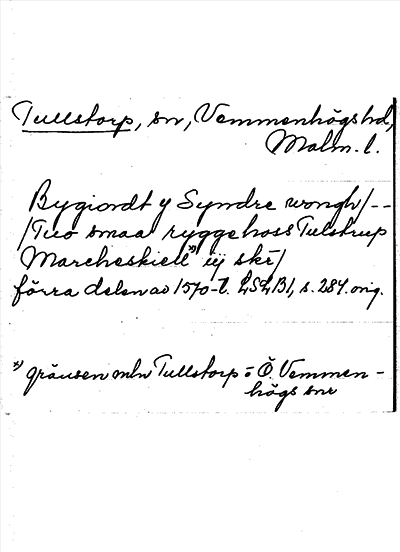 Tullstorp, sn, Vemmenhögs hd,
Malm. l.
Bygiordt y Syndre wongh/--
/Tuo smaa rygge hoss Tulstrup
Marcheskiell x) iij skr/
förra delen av 1570-t. LSLB1, s. 284. orig.
x) gränsen mln Tullstorp o Ö. Vemmen-
högs snr